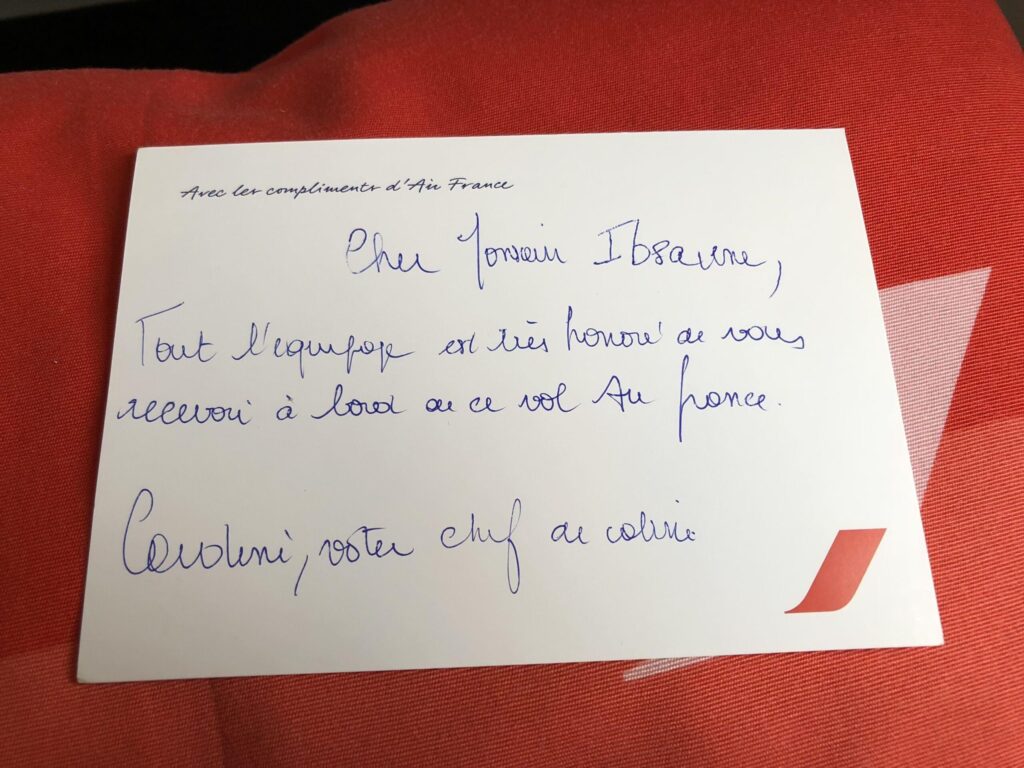 Avec les compliments d'Air France
Cher Monsieur
Tout l'équipage est très honoré de vous
recevoir à bord de ce vol Air France.
votre chef de cabine